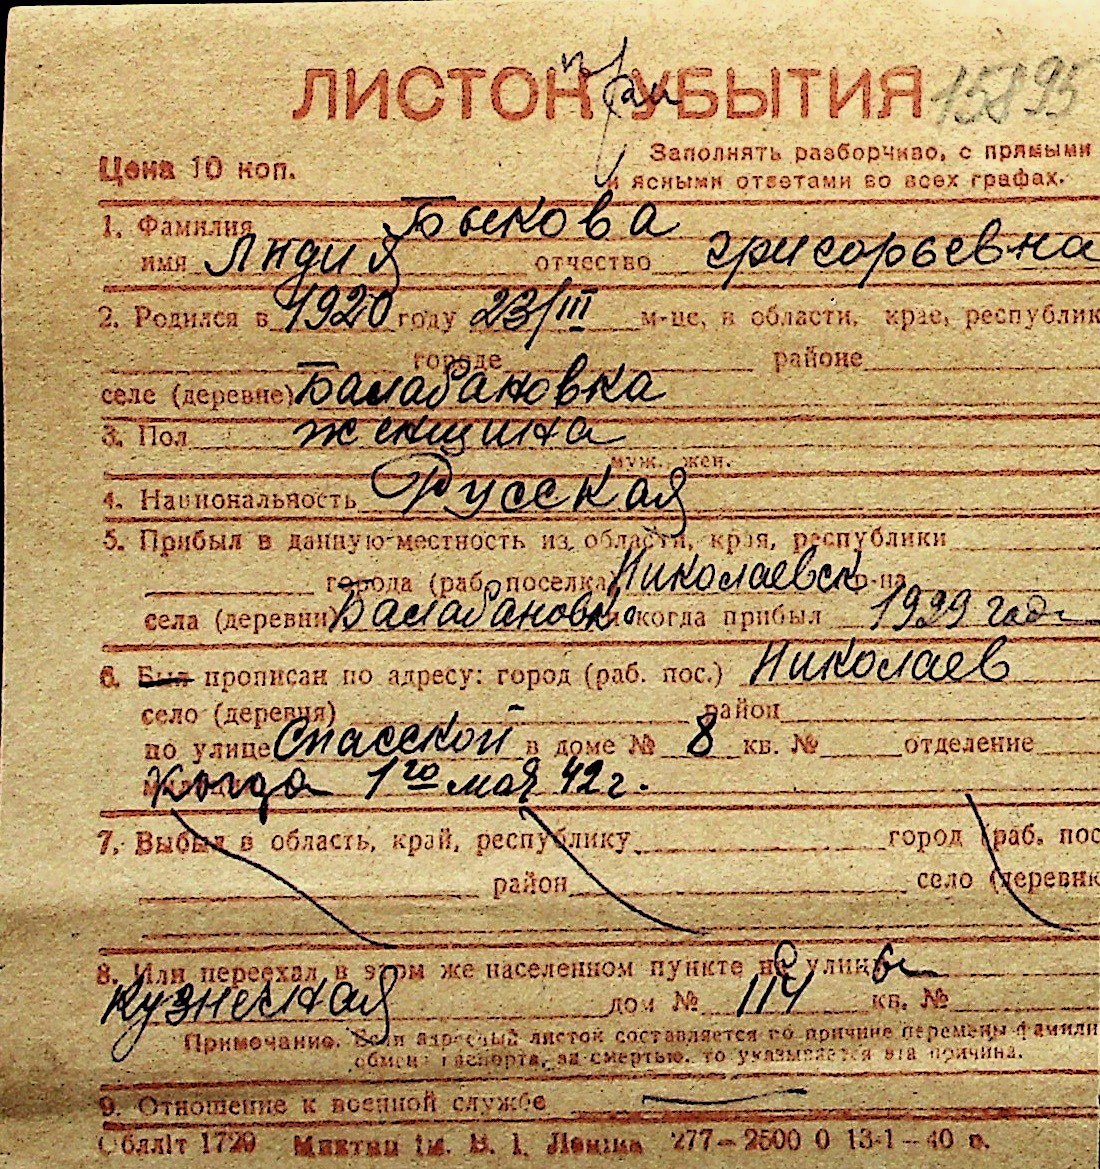 ЛИСТОК УБЫТИЯ 15895
Цена 10 коп.
Заполнять разборчиво, с прямыми
и ясными ответами во всех графах.
1. Фамилия Быкова
имя Лидия отчество Григорьевна
2. Родился в 1920 году 23/III м-це, в области, крае, республик
городе районе
селе (деревне) Балабановка
3. Пол женщина
муж. жен.
4. Национальность Русская
5. Прибыл в данную местность из области, края, республики
города (раб. поселка) Николаевск р-на
села (деревни) Балабановка когда прибыл 1939 год
6. Был прописан по адресу: город (раб. пос.) Николаев
село (деревня) район
по улице Спасской в доме № 8 кв. № отделение
Когда 1го мая 42 г.
7. Выбыл в область, край, республику город (раб. пос
район село (деревни
8. Или переехал в этом же населенном пункте на улицу
Кузнеская дом № 114 кв. №
Примечание. Если адресный листок составляется по причине перемены фамили
обмена паспорта, за смертью, то указывается эта причина.
9. Отношение к военной службе
Обліт 1729 Микткп ім. В. І. Леніна 277—2500 0 13-1—40 р.